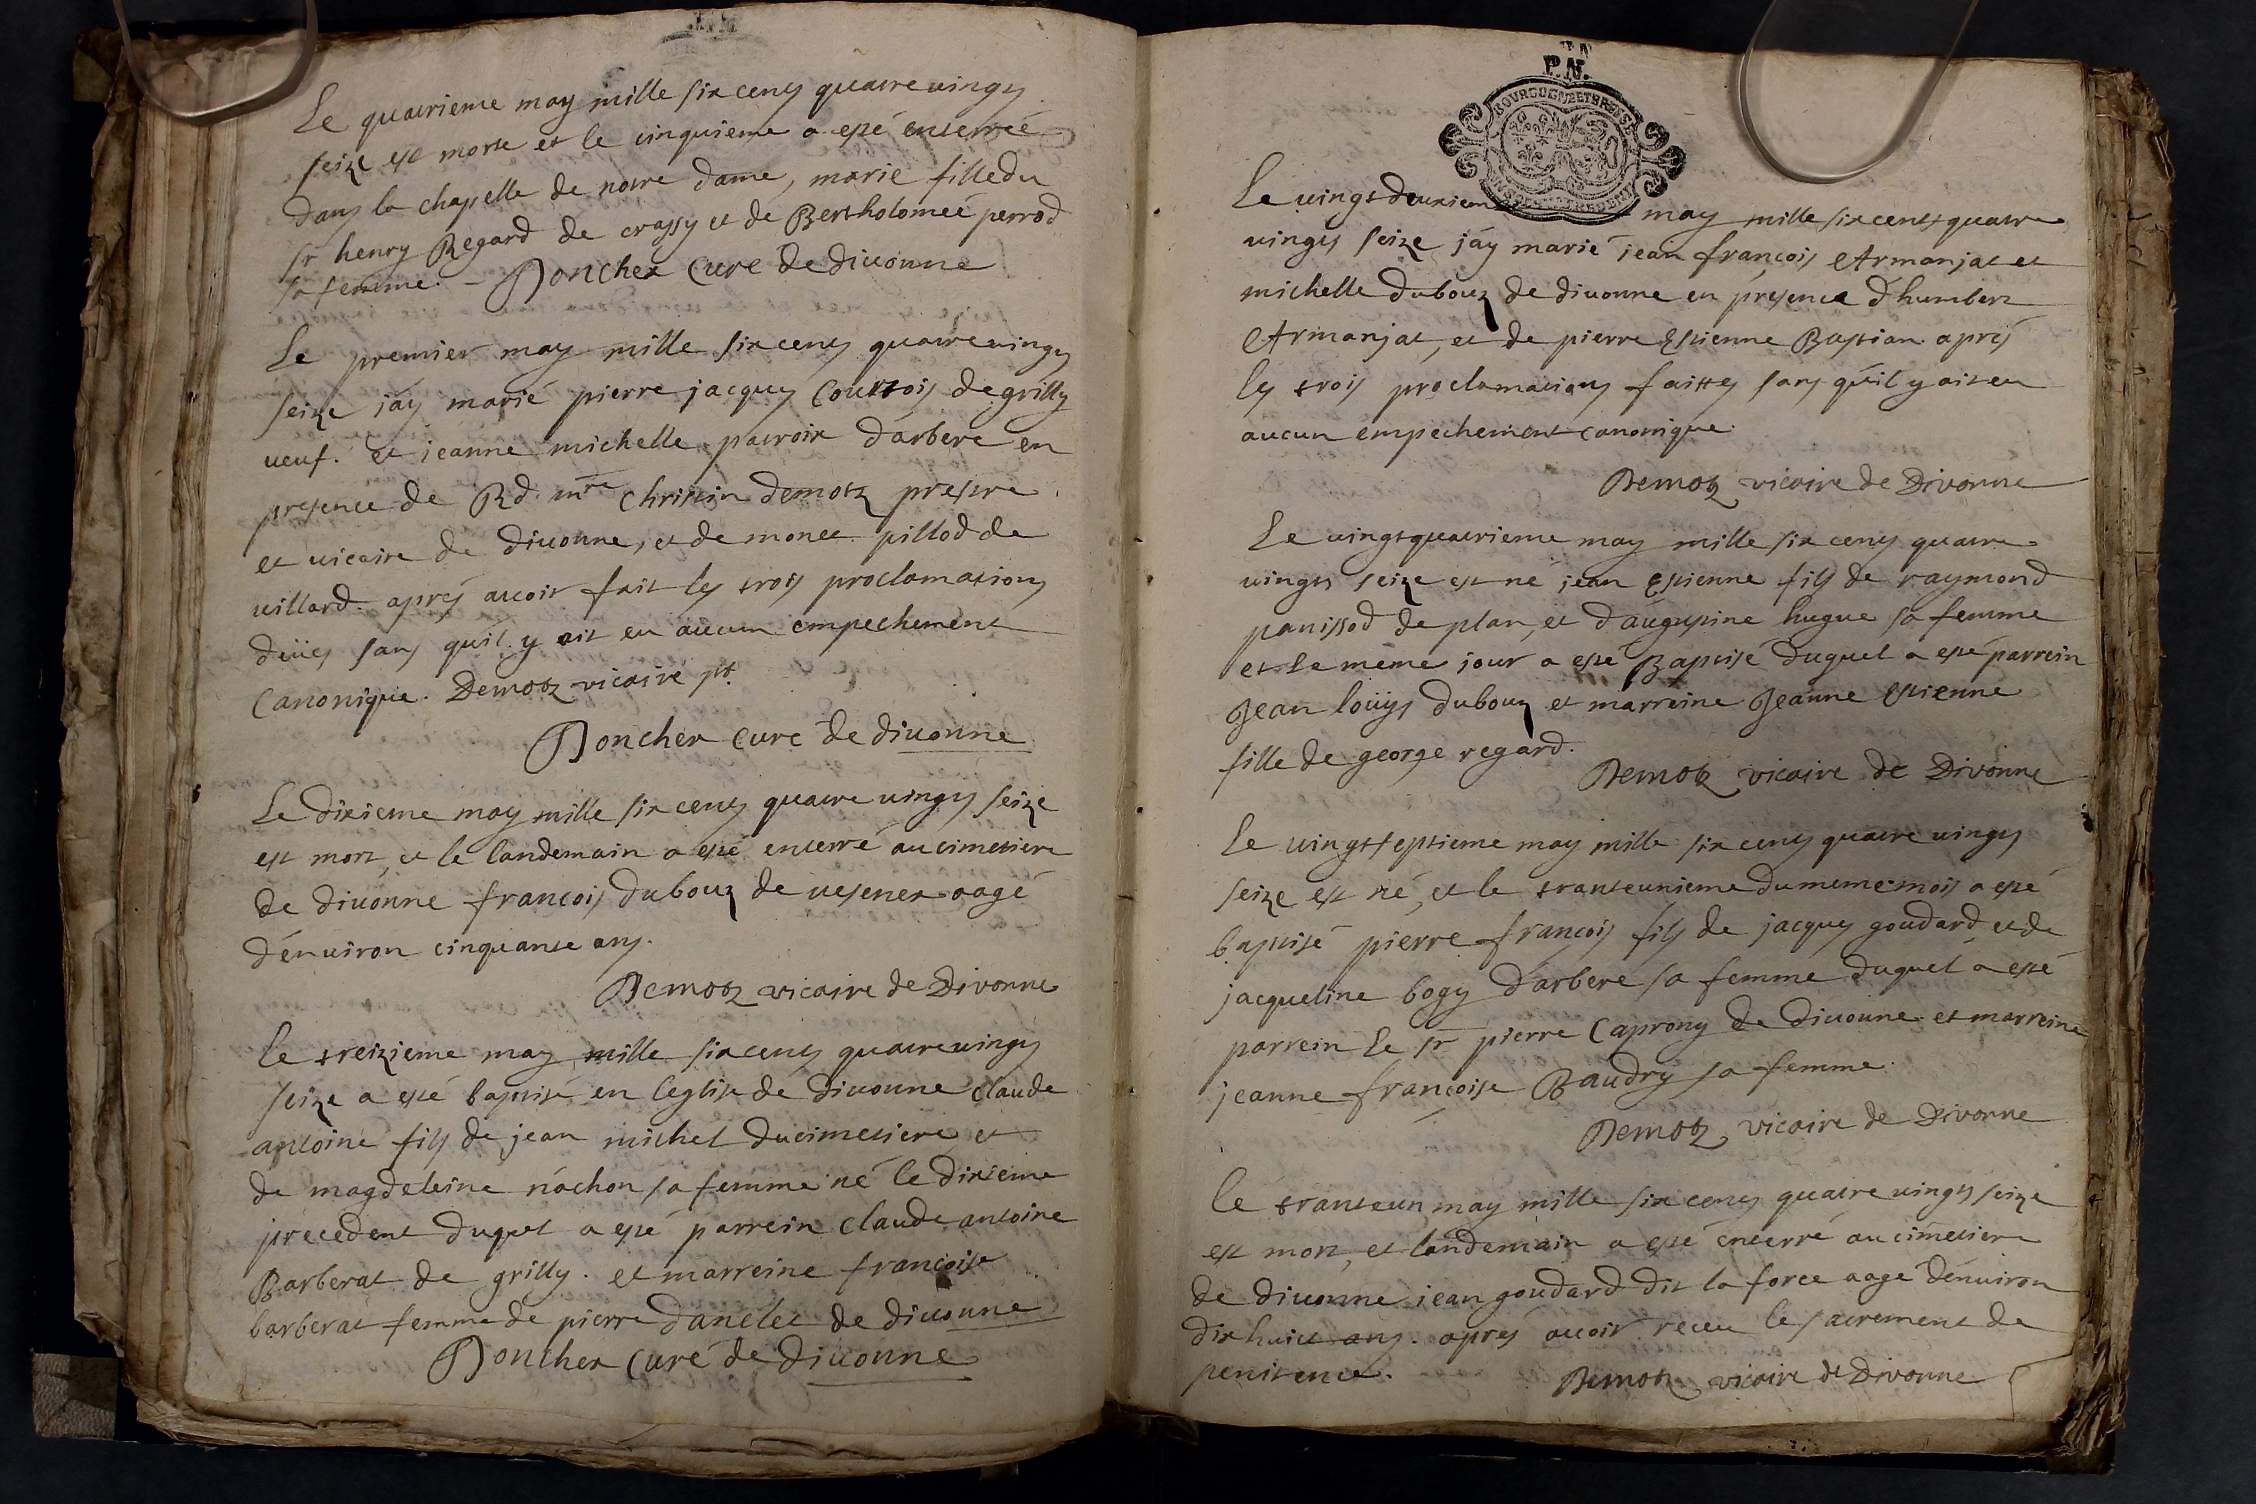 Le quatrieme may mille six cents quatre vingts
seize est morte et le cinquieme a esté enterreé
dans la chapelle de notre dame, marie fille du
sr henry Regard de crassy et de Bertholomeé perrod
sa femme. Poncher Curé de divonne
Le premier may mille six cents quatre vingts
seize jáy marié pierre jacques Courtois de grilly
veuf. et jeanne michelle patroix d'arbere en
presence de Rd. mre Christin demotz prestre
et vicaire de divonne, et de monet pillod de
villard. aprés avoir fait les trois proclamations
deües sans qu'il y ait eu aucun empechement
Canonique. Demotz vicaire pt.
Poncher Curé de divonne
Le dixieme may mille six cents quatre vingts seize
est mort, et le landemain a esté enterré au cimetiere
de divonne françois dubouz de vesenex aagé
d'environ cinquante ans.
Demotz vicaire de Divonne
Le treizieme may mille six cents quatre vingts
seize a esté baptisé en l'eglise de divonne Claude
antoine fils de jean michel ducimetiere et
de magdeleine nachon sa femme né le dixieme
precedent duquel a esté parrein Claude antoine
Barberat de grilly. et marreine françoise
barberat femme de pierre danclet de divonne
Poncher Curé de divonne
P.N.
BOURGOGNE ET BRESSE
Le vingt deuxieme may mille six cents quatre
vingts seize jáy marié jean françois Armanjat et
michelle dubouz de divonne en presence d'humbert
Armanjat, et de pierre Estienne Bastian aprés
les trois proclamations faittes sans qu'il y ait eu
aucun empechement canonique.
Demotz vicaire de Divonne
Le vingt quatrieme may mille six cents quatre
vingts seize est né jean Estienne fils de raymond
panissod de plan, et d'augustine hugue sa femme
et le méme jour a esté Baptisé duquel a esté parrein
Jean loüys dubouz et marreine Jeanne Estienne
fille de george regard.
Demotz vicaire de Divonne
Le vingt septieme may mille six cents quatre vingts
seize est né, et le tranteunieme du meme mois a esté
baptisé pierre françois fils de jacques goudard et de
jacqueline bogy d'arbere sa femme duquel a esté
parrein Le sr pierre Caprony de divonne et marreine
jeanne françoise Baudry sa femme.
Demotz vicaire de Divonne
Le tranteun may mille six cents quatre vingts seize
est mort, et landemain a esté énterré au cimetiere
de divonne jean goudard dit la force aagé d'environ
dix huict ans. aprés avoir receu le sacrement de
penitence.
Demotz vicaire de Divonne